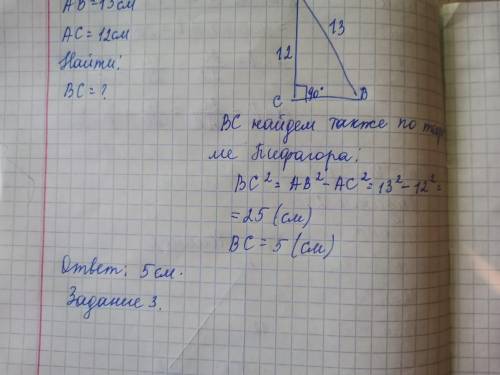 AB = 13см
AC = 12см
Найти:
BC = ?
13
12
C 90° B
BC найдем также по
ме Пифагора:
BC² = AB² - AC² = 13² - 12² =
= 25 (см)
BC = 5 (см)
Ответ: 5 см.
Задание 3.